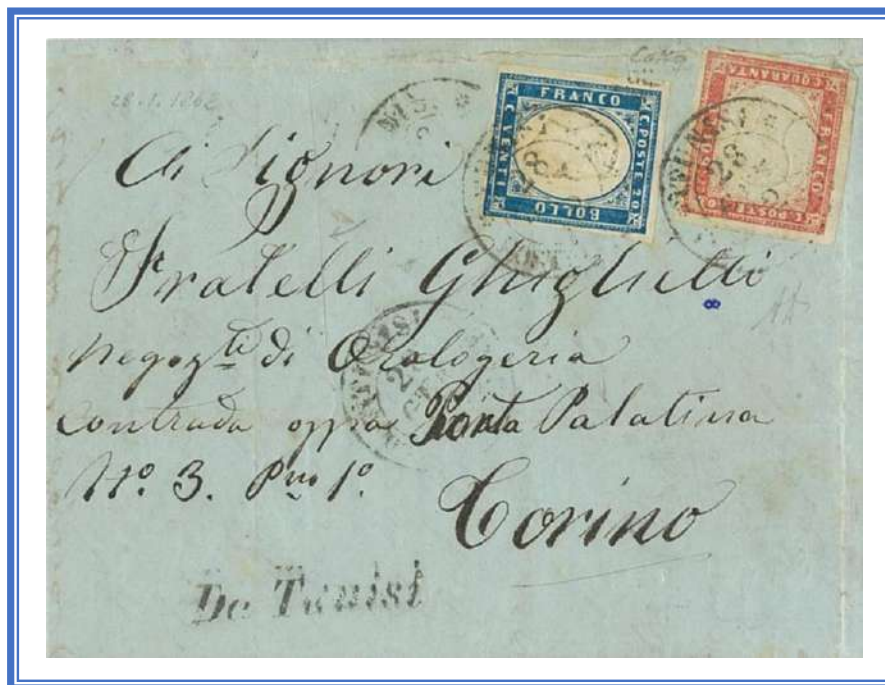 28.1.1862
FRANCO
C. POSTE 20
BOLLO
C. VENTI
FRANCO
C. POSTE 40
C. QUARANTA
TUNISI
28
Ai Signori
Fratelli Ghiglietti
Negozti di Orologeria
contrada appo Porta Palatina
No. 3. Pno 1o.
Torino
Da Tunisi